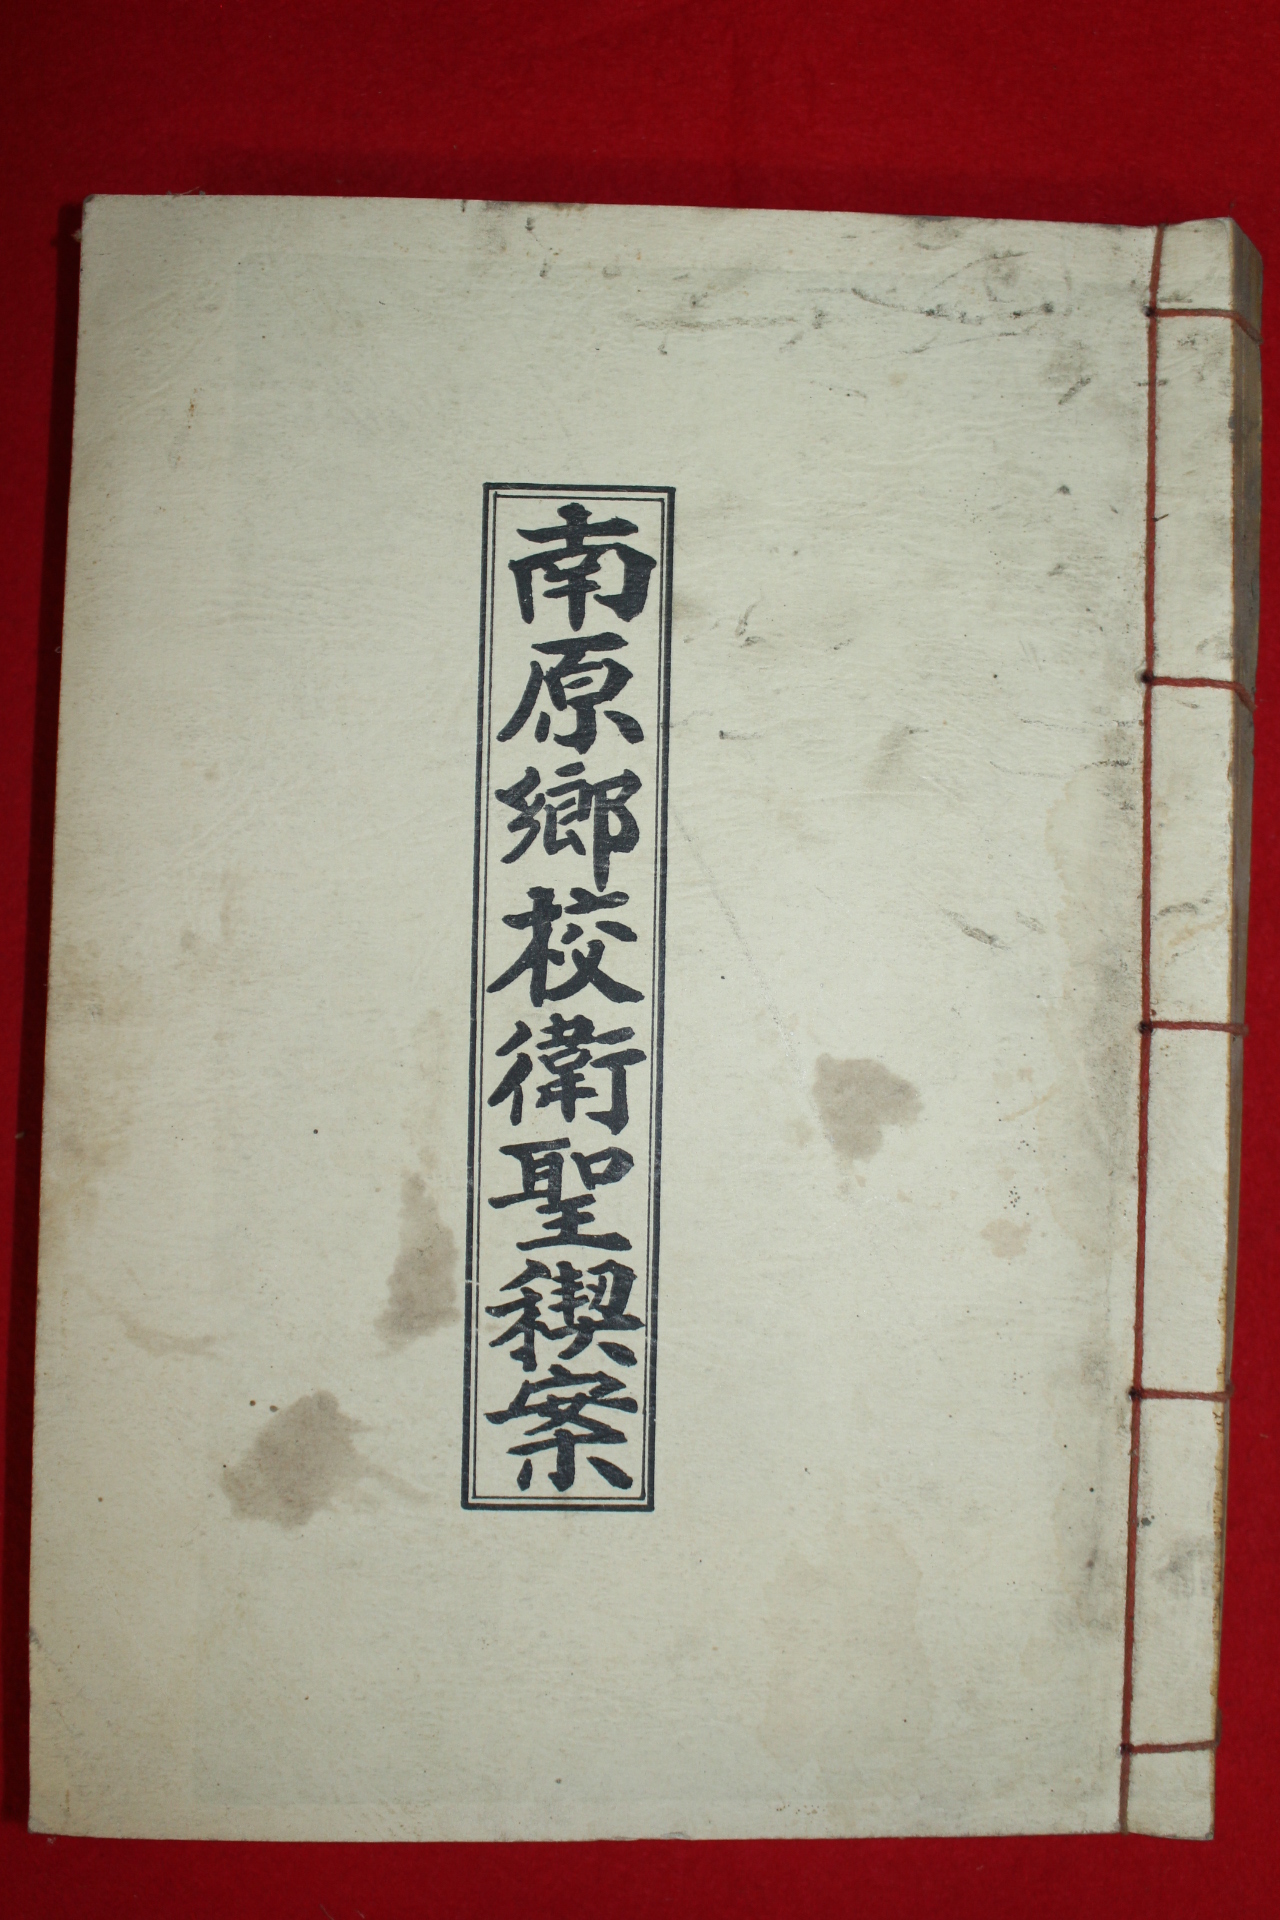 南原鄉校衛聖稧案